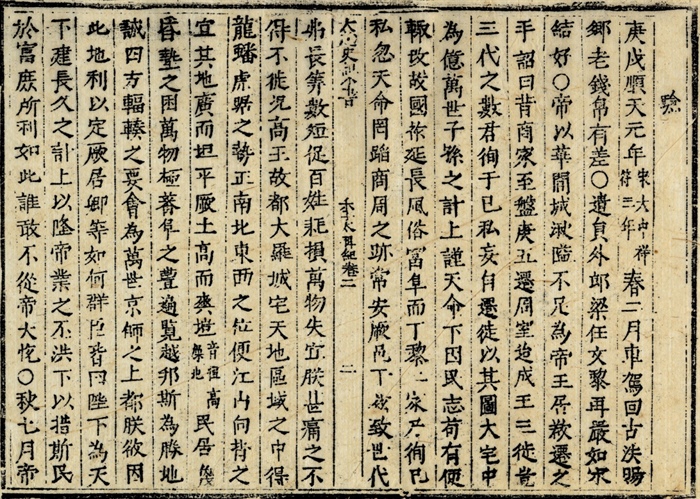 庚戌順天元年宋大中祥符三年春二月車駕回古法賜
鄉老錢帛有差○遣員外郎梁任文黎再嚴如宋
結好○帝以華閭城湫隘不足為帝王居欲遷之
手詔曰昔商家至盤庚五遷周室迨成王三徙豈
三代之數君徇于己私妄自遷徙以其圖大宅中
為億万世子孫之計上謹天命下因民志苟有便
輒改故國祚延長風俗富阜而丁黎二家乃徇己
私忽天命罔蹈商周之跡常安厥邑于茲致世代
卷二 二
弗長算數短促百姓耗損萬物失宜朕甚痛之不
得不徙況高王故都大羅城宅天地區域之中得
龍蟠虎踞之勢正南北東西之位便江山向背之
宜其地廣而坦平厥土高而爽塏民居蔑
昏墊之困萬物極蕃阜之豐遍覽越邦斯為勝地
誠四方輻輳之要會為萬世京師之上都朕欲因
此地利以定厥居卿等如何群臣皆曰陛下為天
下建長久之計上以隆帝業之丕洪下以措斯民
於富庶所利如此誰敢不從帝大悅○秋七月帝